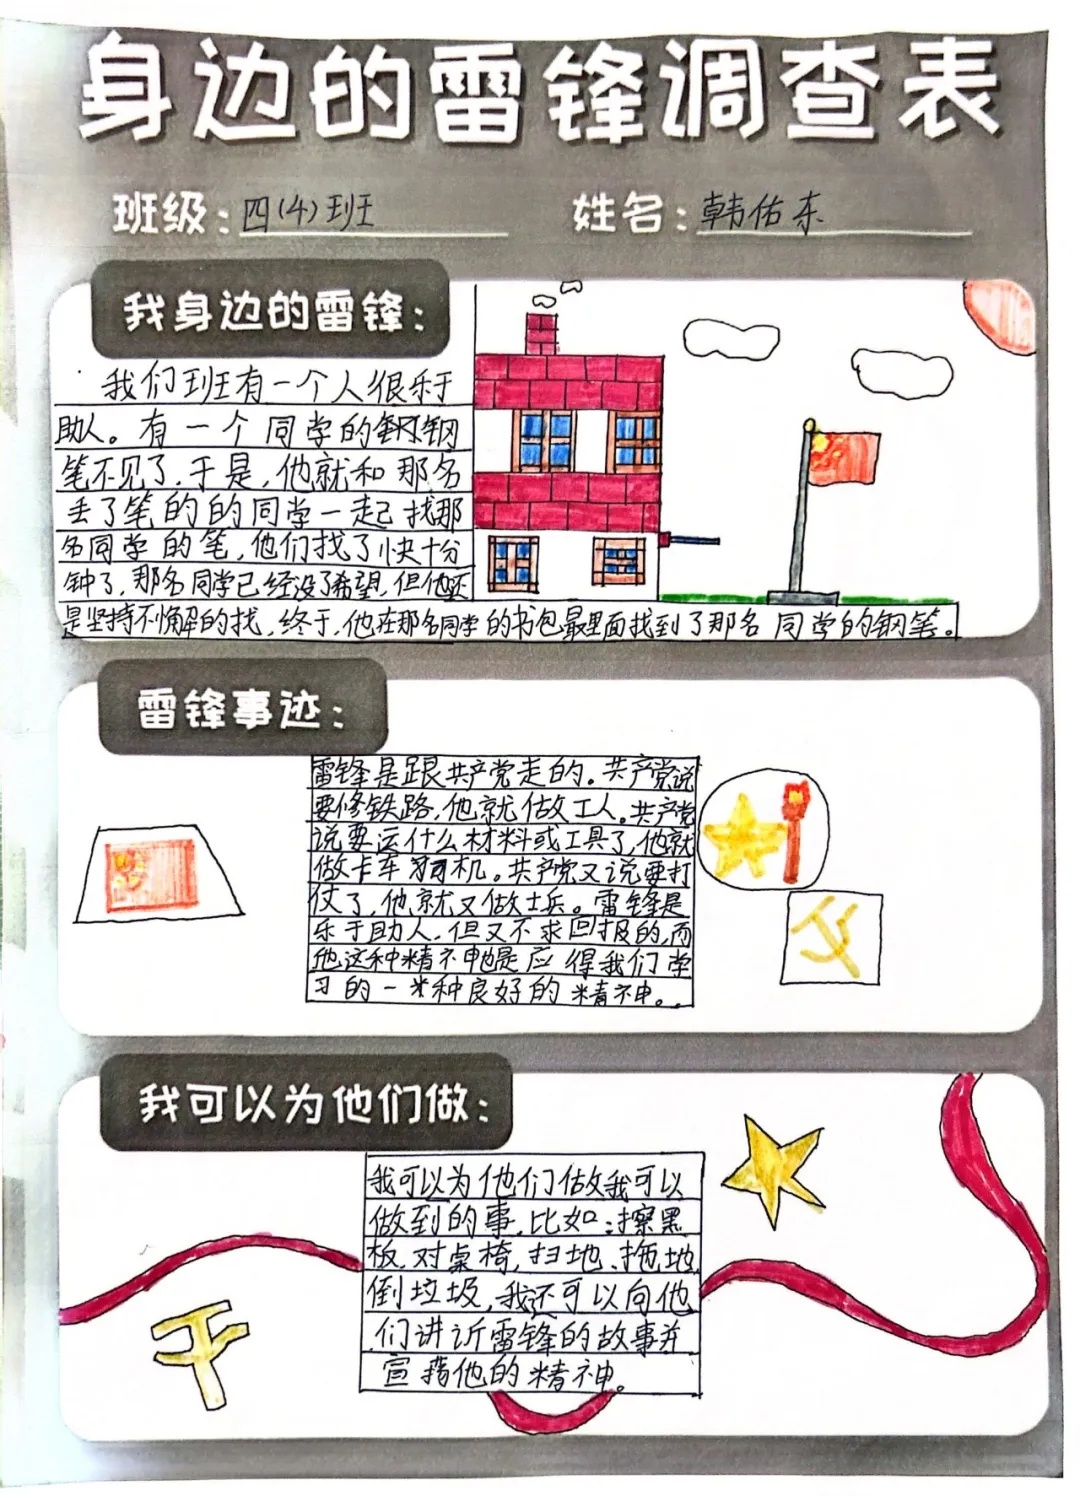 身边的雷锋调查表
班级：四(4)班 姓名：韩佑东
我身边的雷锋：
我们班有一个人很乐于
助人。有一个同学的钢
笔不见了，于是，他就和那名
丢了笔的的同学一起找那
名同学的笔，他们找了快十分
钟了，那名同学已经没了希望，但他还
是坚持不懈的找，终于，他在那名同学的书包最里面找到了那名同学的钢笔。
雷锋事迹：
雷锋是跟共产党走的。共产党说
要修铁路，他就做工人。共产党
说要运什么材料或工具了，他就
做卡车司机。共产党又说要打
仗了，他就又做士兵。雷锋是
乐于助人，但又不求回报的，而
他这种精神也是应得我们学
习的一种良好的精神。
我可以为他们做：
我可以为他们做我可以
做到的事，比如：擦黑
板，对桌椅，扫地、拖地，
倒垃圾，我还可以向他
们讲述雷锋的故事并
宣藉他的精神。